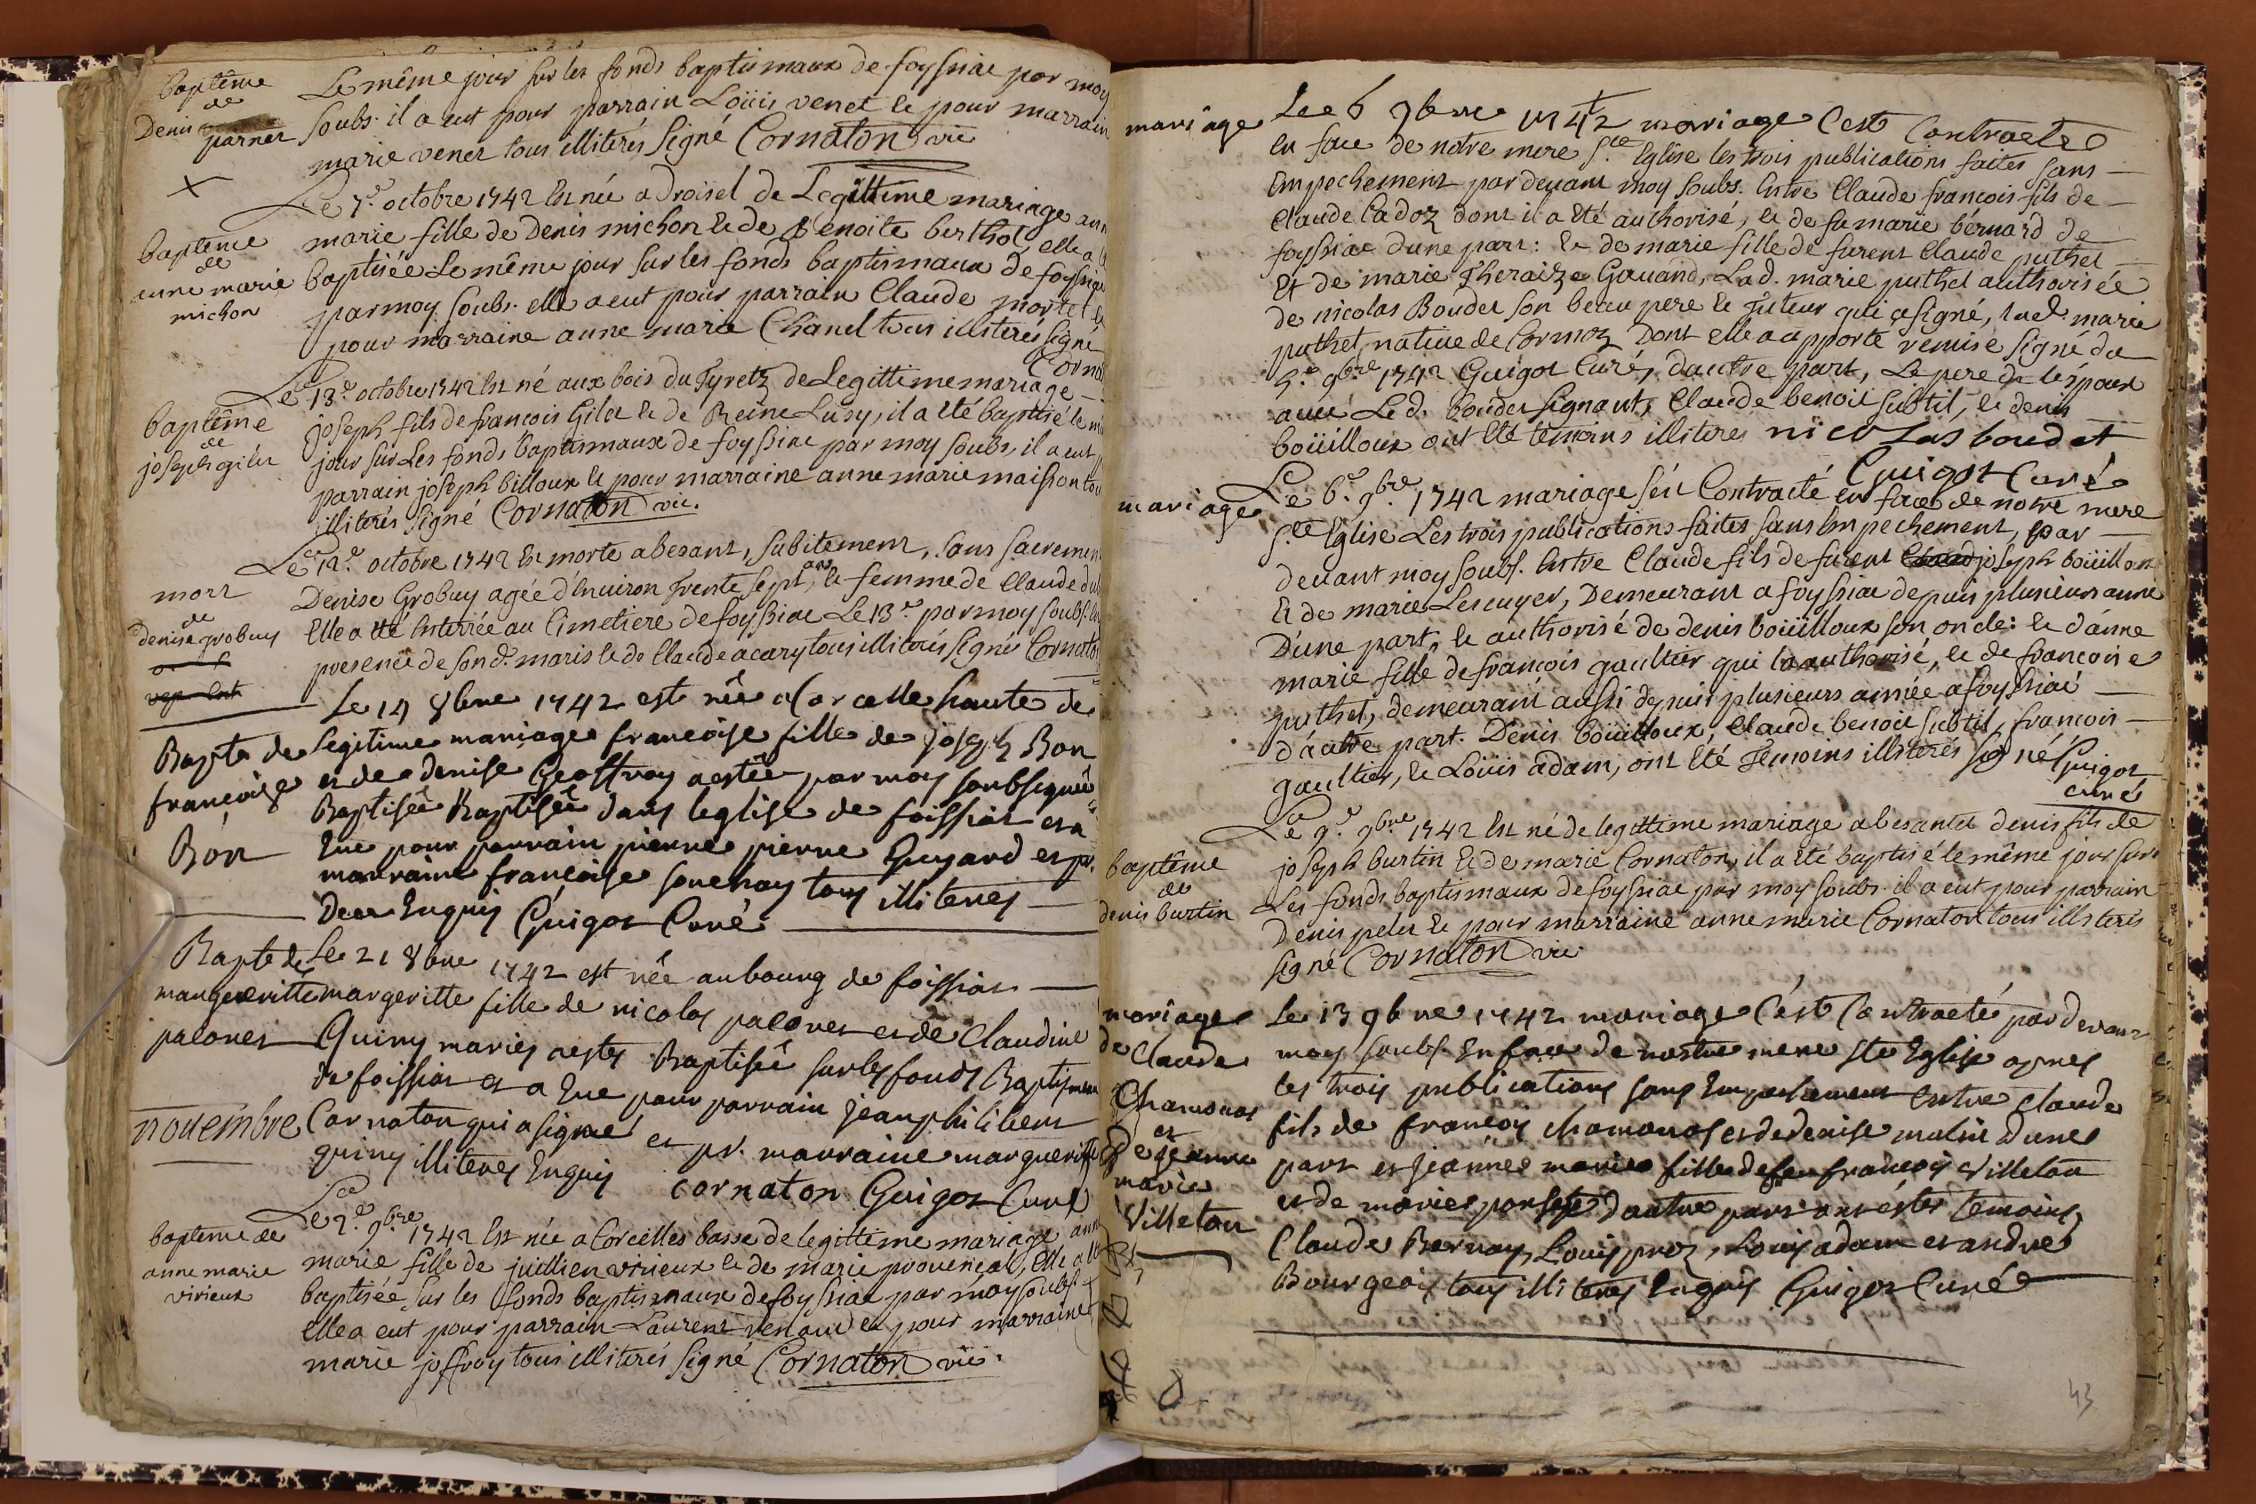 baptême
de
Denis
parnet
Le même jour sur les fonds baptismaux de foyssiac par moy
soubs. il a eut pour parrain Loüis venet le pour marrain
marie venet tous illiterés Signé Cornaton vic
baptême
de
anne marie
michon
Le 7e octobre 1742 Est née a Droisel de Legittime mariage ann
marie fille de Denis michon & de Benoite berthot, elle a
baptisée Le même jour sur les fonds baptismaux de foyssia
par moy soubs. elle a eut pour parrain Claude mortet &
pour marraine anne marie Chanel tous illiterés signé
Corna
baptême
de
joseph gilet
Le 13e octobre 1742 Est né aux bois du Tyretz de Legittime mariage
joseph fils de françois Gilet & de Reine Lusy, il a Eté baptisé le mê
jour sur Les fonds baptismaux de foyssiac par moy soubs, il a eut
parrain joseph billoux & pour marraine anne marie maisson tou
illiterés Signé Cornaton vic.
mort
de
denise grobuy
Le 12e octobre 1742 Est morte a besant, subitement, sans sacremen
Denise Grobuy agée d'Environ Trente sept ans, & femme de Claude
Elle a Eté Enterrée au Cimetiere de foyssiac Le 13e par moy soubs.
presence de son d. maris & de Claude acary tous illiterés Signé Cornato
Bapte de
françoise
Bon
Le 14 8bre 1742 est née a Corcelle haute de
legitime mariage françoise fille de joseph Bon
et de denise Geoffray a estée par moy soubsigné
Baptisée Baptisée dans leglise de foissiat et a
Eue pour parrain pierre pierre Guyard et pr.
marraine françoise sonenay tous illiteres
Dece Enquis Guigot Curé
Bapte de
margueritte
pacoret
Le 21 8bre 1742 est née au bourg de foissiat
margeritte fille de nicolas pacoret et de Claudine
Quiny mariés a estée Baptisée sur les fonds Baptismau
de foissiat et a Eue pour parrain jean philibert
Cornaton qui a signé et pr. marraine margueritte
quiny illiteres Enquis cornaton Guigot Curé
novembre
baptême de
anne marie
virieux
Le 2e 9bre 1742 Est née a Corcelles basse de legittime mariage ann
marie fille de jullien virieux & de marie provençal, Elle a
baptisée sur les fonds baptismaux de foyssiac par moy soubs
Elle a eut pour parrain Laurent venaud & pour marraine
marie joffray tous illiterés signé Cornaton vic.
mariage
Le 6 9bre 1742 mariage C'est Contracté
En face de notre mere Ste Eglise les trois publications faites sans
Empechement par devant moy soubs. Entre Claude françois fils de
Claude Cadoz dont il a Eté authorisé, & de fu marie bérnard de
foyssiac dune part: & de marie fille de furent Claude puthet
Et de marie Theraize Gouand, Lad. marie puthet authorisée
de nicolas Boudet son beau pere & Tuteur qui a signé, lad. marie
puthet, native de Cormoz Dont elle a apporté remise signé du
5e 9bre 1742 Guigot Curé, dautre part, Le pere de lépoux
avec Led. boudet signant, Claude benoit subtil, & denis
boüilloux ont Eté témoins illiteres nicolas boudet
Guigot Curé
mariage
Le 6e 9bre 1742 mariage s'est Contracté En face de notre mere
Ste Eglise Les trois publications faites sans Empechement, par
devant moy soubs. Entre Claude fils de furent joseph boüilloux
& de marie Lescuyer, Demeurant a foyssiac depuis plusieurs année
D'une part, & authorisé de denis boüilloux son oncle: & d'anne
marie fille de françois gaultier qui la authorisé, & de françoise
puthet, demeurant aussi depuis plusieurs année a foyssiac
d'autre part. Denis boüilloux, Claude benoit subtil, françois
gaultier, & Loüis adam, ont Eté Temoins illiterés signé Guigot
curé
baptême
de
denis burtin
Le 9e 9bre 1742 Est né de legittime mariage a besantet denis fils de
joseph burtin & de marie Cornaton, il a Eté baptisé le même jour sur
Les fonds baptismaux de foyssiac par moy soubs. il a eut pour parrain
Denis pelet & pour marraine anne marie Cornaton tous illiteris
signé Cornaton vic
mariage
de
Claude
Chamonat
et
De jeanne
marie
Villeton
Le 13 9bre 1742 mariage C'est Contracté par devant
moy soubs. En face de nostre mere ste Eglise apres
les trois publications sans Empechement Entre Claude
fils de françois chamonat et de denise matin Dune
part et jeanne marie fille de feu françois Villeton
et de marie dautre part ont estés temoins
Claude Bernay, Louis prez, Louis adam et andré
Bourgeois tous illiteres Enquis Guigot Curé
43